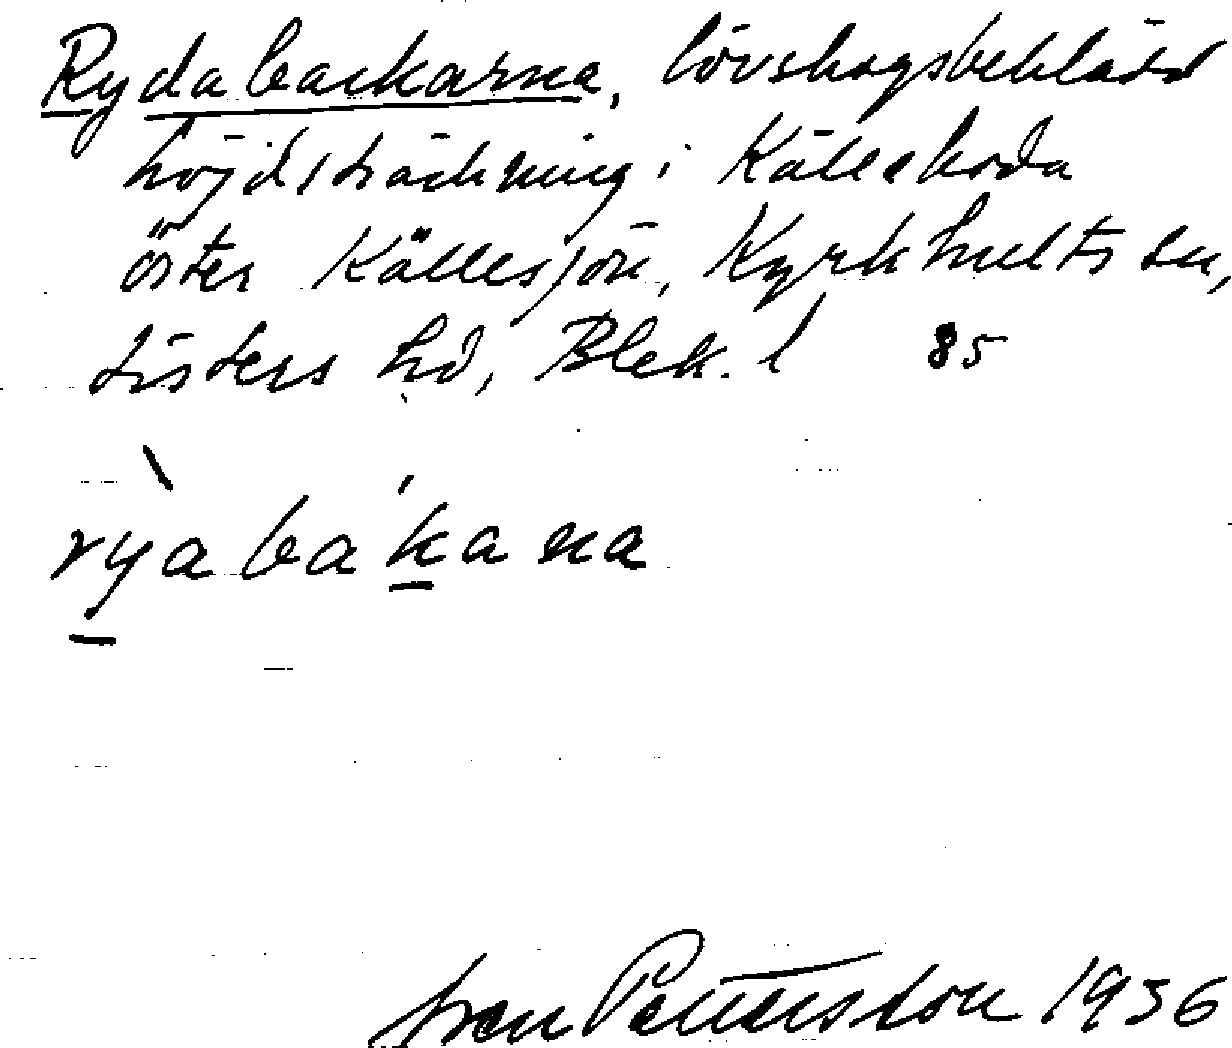 Rydabackarna, lövskogsbeklädd
höjdsträckning i Källeboda
öster Källesjön, Kyrkhults sn,
Listers hd, Blek. l 85
ryabakana
Sven Pettersson 1936